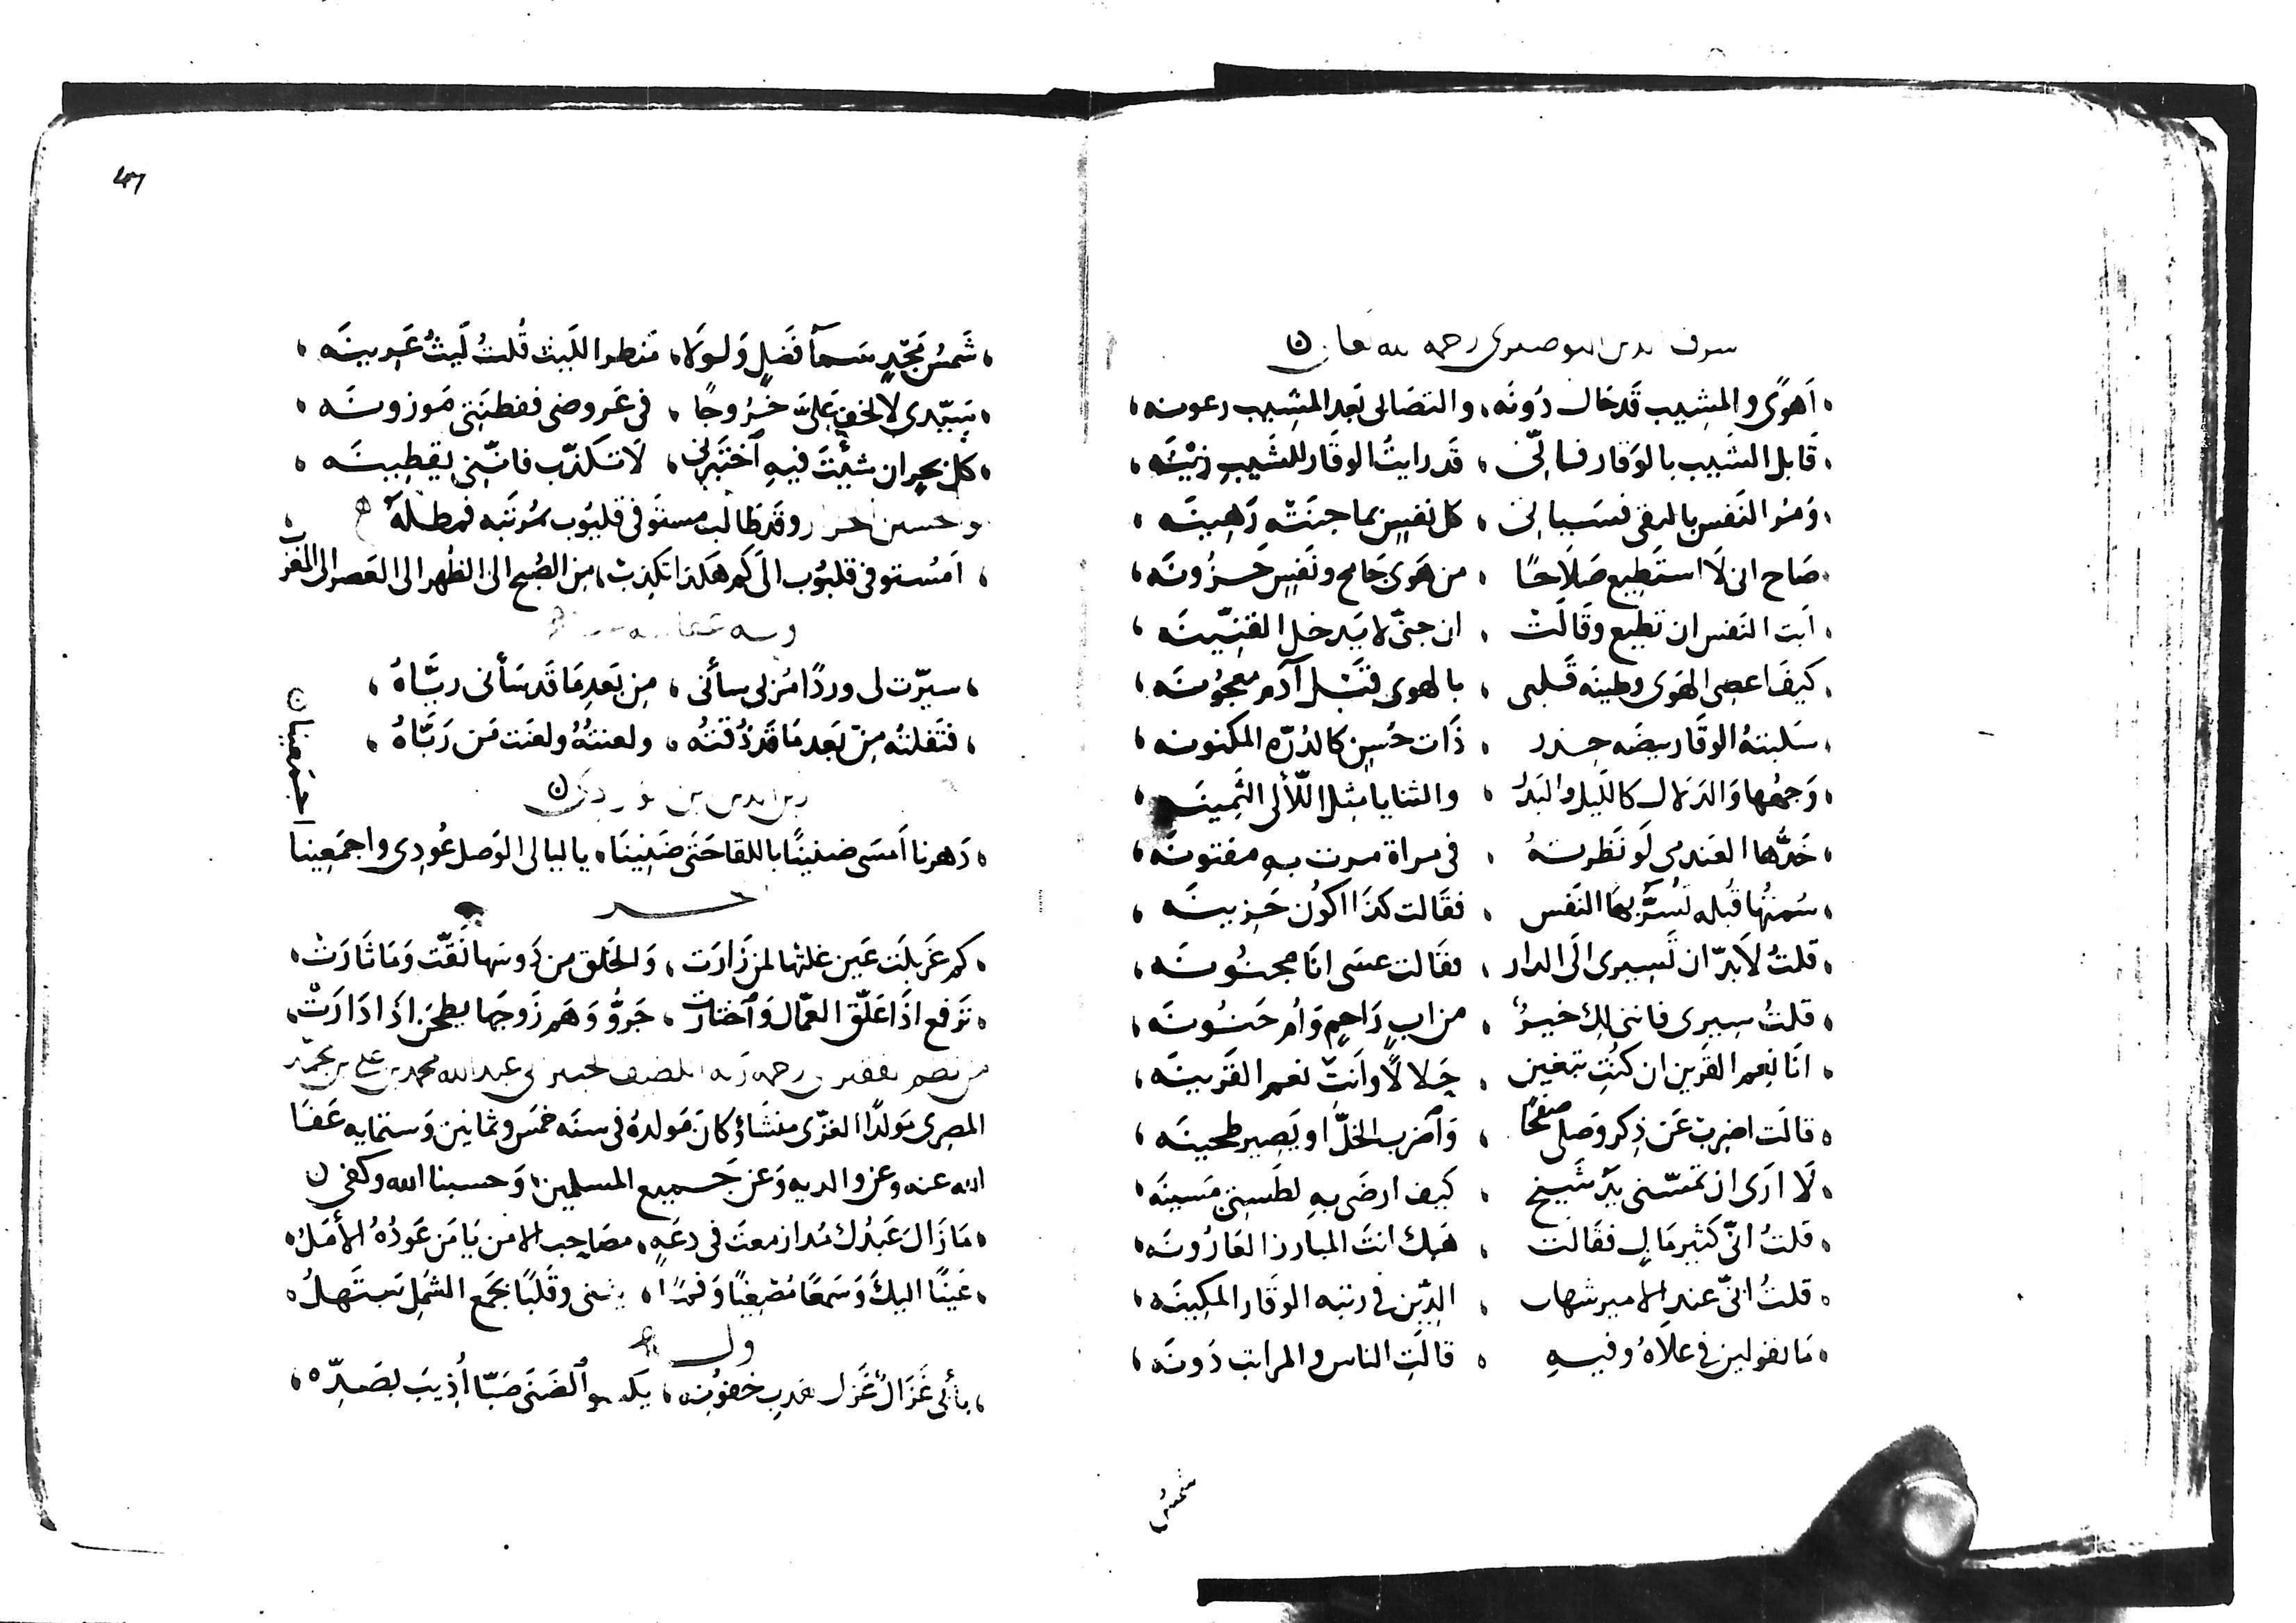 شرف الدين البوصيري رحمه الله تعالى ن
أهوًى والمشيب قد حال دونه، والتصابى بعد المشيب رعونه،
قابل الشيب بالوقار فما لى، قد رايتُ الوقار للشيب زينه،
ومر النفس بالتقى، كل نفس بما جنته رهينه،
صاح انى لا استطيع صلاحًا، من هوى جامح ونفس حزونه،
ابت النفس ان تطيع وقالت، ان جنّى لا يدخل القنّينه،
كيف اعصى الهوى وطينه قلبى، بالهوى قبل آدم معجونه،
سلبتهُ الوقار بيضه خدر، ذات حُسن كالدُرّه المكنونه،
وجهُها والدلال كالليل والبدر، والثنايا مثل اللألى الثمينه،
خدُّها العندمى لو نظرتهُ، فى مراة مرت به مفتونه،
سُمتُها قُبله تُسَرُّ بها النفس، فقالت كذا اكون حزينه،
قلتُ لابدّ ان تسيرى الى الدار، فقالت عسى انا مجنونه،
قلتُ سيرى فاننى لك خيرُ، من ابٍ راحمٍ وأم حنونه،
انا نعم القرين ان كنتِ تبغين، حلالًا وانتِ نعم القرينه،
قالت اضرب عن ذكر وصلى صفحًا، واضرب الخلّ او يصير طحينه،
لا ارى ان تمسّنى يدُ شيخ، كيف ارضى به لطستى مسينه،
قلتُ انّى كثير مالٍ فقالت، هبك انت المبارز القارونه،
قلتُ انّى عند الامير شهاب، الدين فى رتبه الوقار المكينه،
ما تقولين فى علاهُ وفيهِ، قالت الناس فى المراتب دونه،
شمسُ
47
شمسُ مجدٍ سما فضلٍ ولولا، منظر الليث قُلتُ ليثُ عرينه،
سيدى لا تخف علىّ خروجًا، فى عروضى ففطنتى موزونه،
كل بحر ان شئت فيه اختبرنى، لا تكذّب فاننى يقطينه،
وقد طالب مستوفى قليوب بمرتبه فمطله
امستوفى قليوب الى كم هكذا تكذب، من الصُبح الى الظُهر الى العصر الى المغرب
وله
سيّرت لى وردًا سأنى، من بعد ما قد سأنى ريّاهُ،
فتفلته من بعد ما قد ذُقته، ولعنتهُ ولعنت من ربّاهُ،
زين الدين بن الوردى ن
دهرنا امسى ضنينًا باللقا حتى ضنينا، ياليالى الوصل عُودى واجمعينا
اجمعينا ن
كم غربلت عين غلتها لمن زارت، والخلق من دونها نقّت وما ثارت،
ترفع اذا علّق العمّال واختارت، جروُّ وهم زوجها يطحن اذا دارت،
من نظم الفقير الى رحمه ربه اللطيف الخبير ابى عبد الله محمد بن على بن محمد
المصرى مولدًا الغزّى منشأ وكان مولدهُ فى سنه خمس وثمانين وستمايه عفا
الله عنه وعن والديه وعن جميع المسلمين، وحسبنا الله وكفى ن
ما زال عبدك مُذ ازمعت فى دعهٍ، مصاحب الامن يا من عودُهُ الأمل،
عينًا اليك وسمعًا مُصغيًا وفمًا، يثنى وقلبًا بجمع الشمل يبتهلُ،
وله
بأبى غزالٌ غزل، والضنى صبّا أُذيب بصدّه،